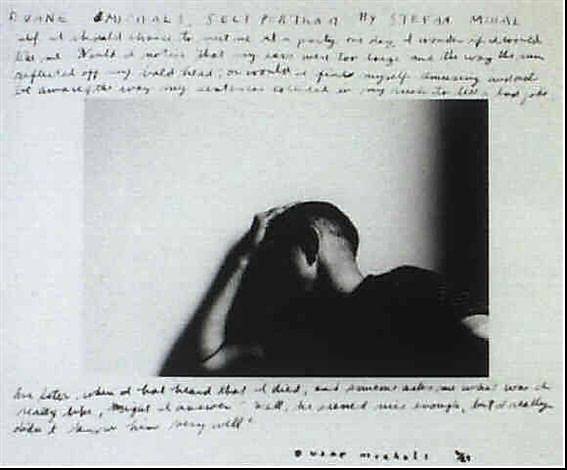 DUANE MICHALS, SELF PORTRAIT BY STEFAN MIHAL
If I should chance to meet me at a party one day, I wonder if I would
like me. Would I notice that my ears were too large and the way the sun
reflected off my bald head; or would I find myself amusing and not
be aware of the way my sentences in my rush to tell a bad joke.
when I had heard that I died, and someone asks me what was I
really like, might I answer, "Well, he seemed nice enough, but I really
didn't know him very well"
Duane Michals